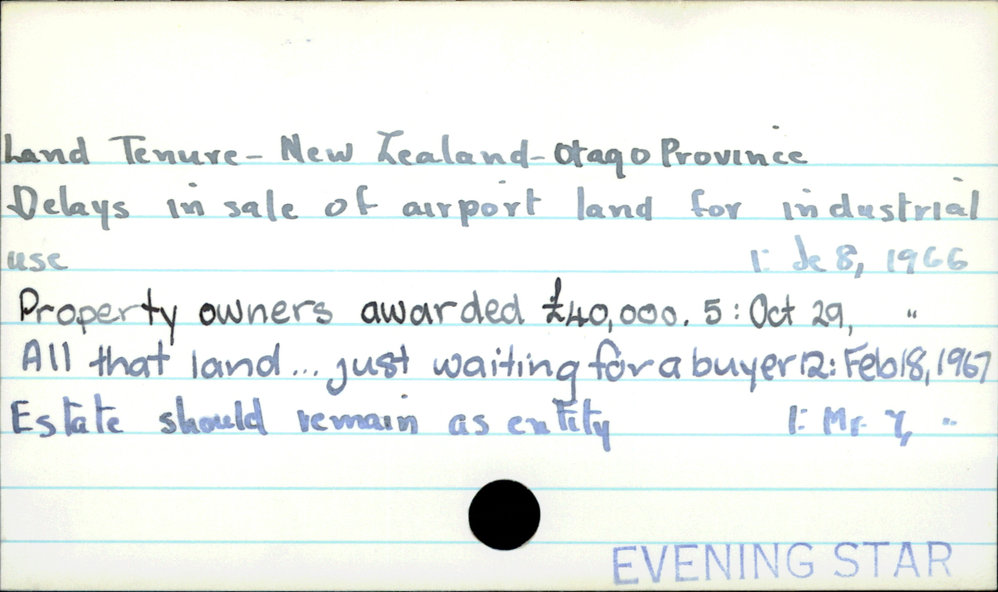 Land Tenure - New Zealand - Otago Province
Delays in sale of airport land for industrial
use 1: De 8, 1966
Property owners awarded £40,000. 5: Oct 29, "
All that land... just waiting for a buyer 12: Feb 18, 1967
Estate should remain as entity 1: Mr 7, "
EVENING STAR